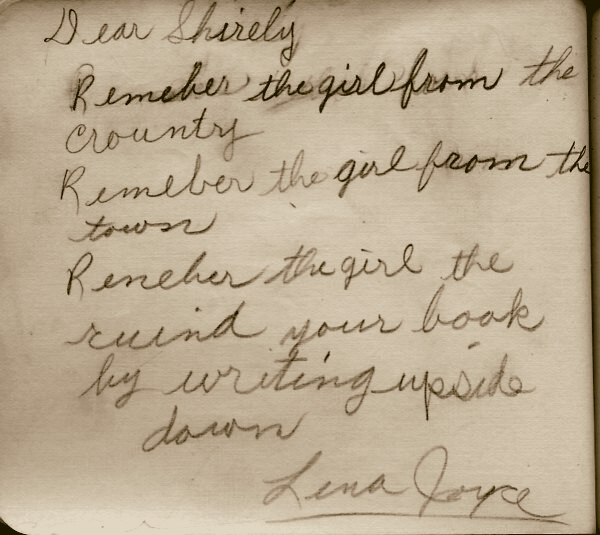 Dear Shirely
Remeber the girl from the
Crounty
Remeber the girl from the
town
Reneber the girl the
ruind your book
by writing upside
down
Lena Joyce